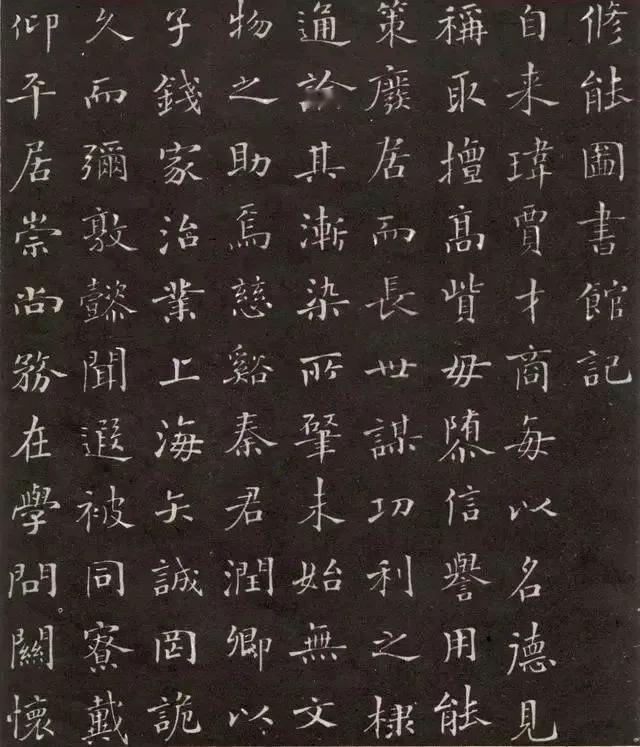 修能圖書館記
自来瑋賈才商每以名德見
稱取擅高貲毋隳信譽用能
策廢居而長世謀功利之棣
通於其漸染所肇未始無文
物之助焉慈谿秦君潤卿以
子錢家治業上海矢誠罔詭
久而彌敦懿聞遐被同寮戴
仰平居崇尚務在學問關懷